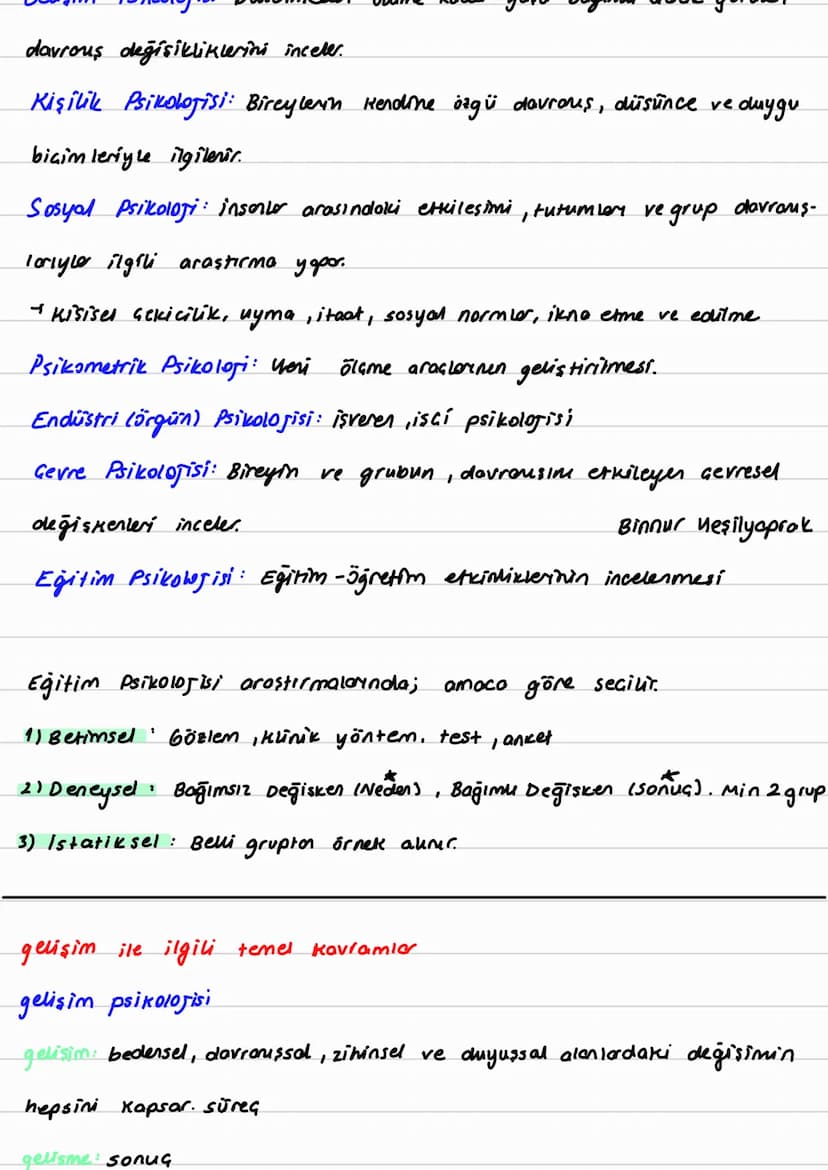 davranış değişikliklerini inceler.
Kişilik Psikolojisi: Bireylerin kendine özgü davranış, düşünce ve duygu
biçimleriyle ilgilenir.
Sosyal Psikoloji: insanlar arasındaki etkileşimi, tutumları ve grup davranış-
larıyla ilgili araştırma yapar.
→ Kişisel çekicilik, uyma, itaat, sosyal normlar, ikna etme ve edilme
Psikometrik Psikoloji: Yeni ölçme araçlarının geliştirilmesi.
Endüstri (örgün) Psikolojisi: işveren, işçi psikolojisi
Çevre Psikolojisi: Bireyin ve grubun, davranışını etkileyen çevresel
değişkenleri inceler.
Binnur Yeşilyaprak
Eğitim Psikolojisi: Eğitim-öğretim etkinliklerinin incelenmesi
Eğitim Psikolojisi araştırmalarında; amaca göre seçilir.
1) Betimsel: Gözlem, klinik yöntem. test, anket
2) Deneysel: Bağımsız Değişken (Neden), Bağımlı Değişken (sonuç). Min 2 grup
3) İstatiksel: Belli gruptan örnek alınır.
gelişim ile ilgili temel kavramlar
gelişim psikolojisi
gelişim: bedensel, davranışsal, zihinsel ve duyuşsal alanlardaki değişimin
hepsini kapsar. süreç
gelişme: sonuç